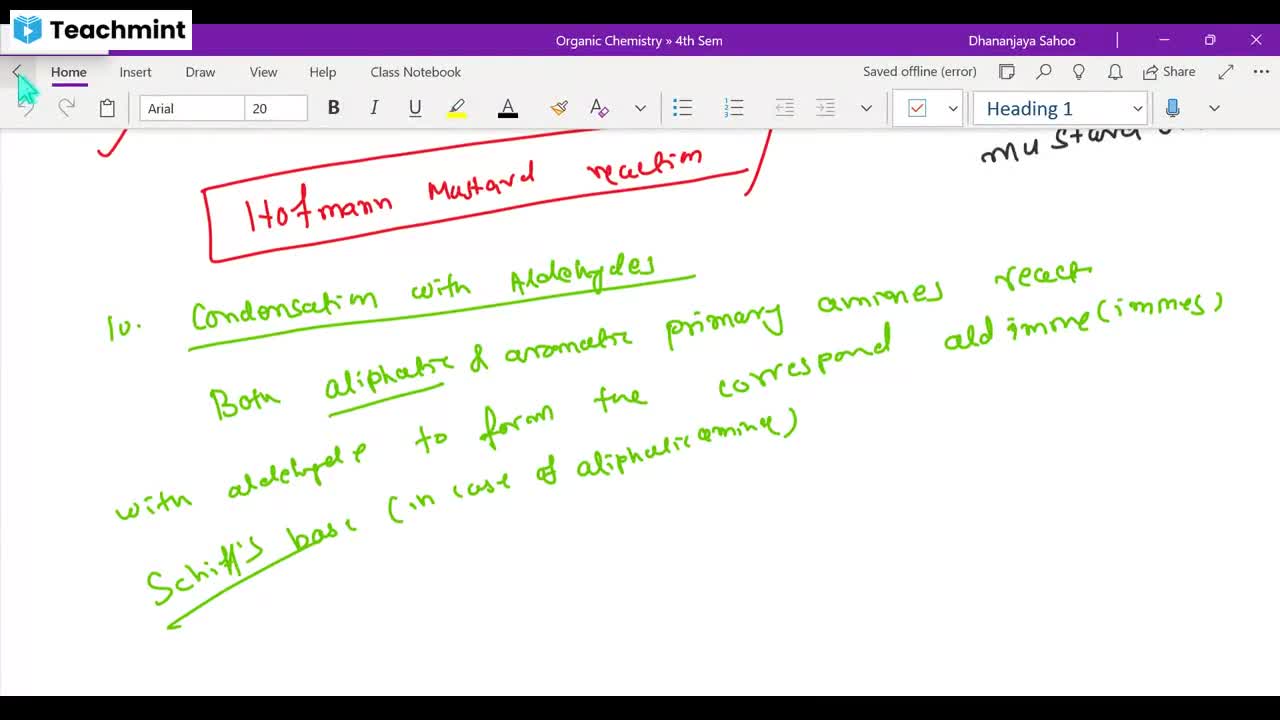 Teachmint
Organic Chemistry » 4th Sem
Dhananjaya Sahoo
Home Insert Draw View Help Class Notebook
Saved offline (error)
Share
Arial 20 B I U A A Heading 1
mustard
Hofmann Mustard reaction
10. Condensation with Aldehydes
Both aliphatic & aromatic primary amines react
with aldehyde to form the correspond aldimine (imines)
Schiff's base (in case of aliphatic amine)